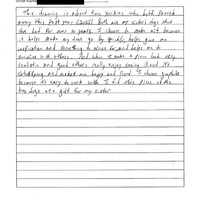 Artist Name:
This drawing is about two Yorkies who both passed
away this past year (2025). Both are my sister's dogs that
she had for over 10 years. I chose to make art because
it helps make my time go by quickly, helps gave me
inspiration and something to strive for, and helps me to
socialize with others. And when I make a piece look very
realistic and good others really enjoy seeing it and it's
satisfying and makes me happy and proud. I chose graphite
because its easy to work with. I did this piece of the
two dogs as a gift for my sister.